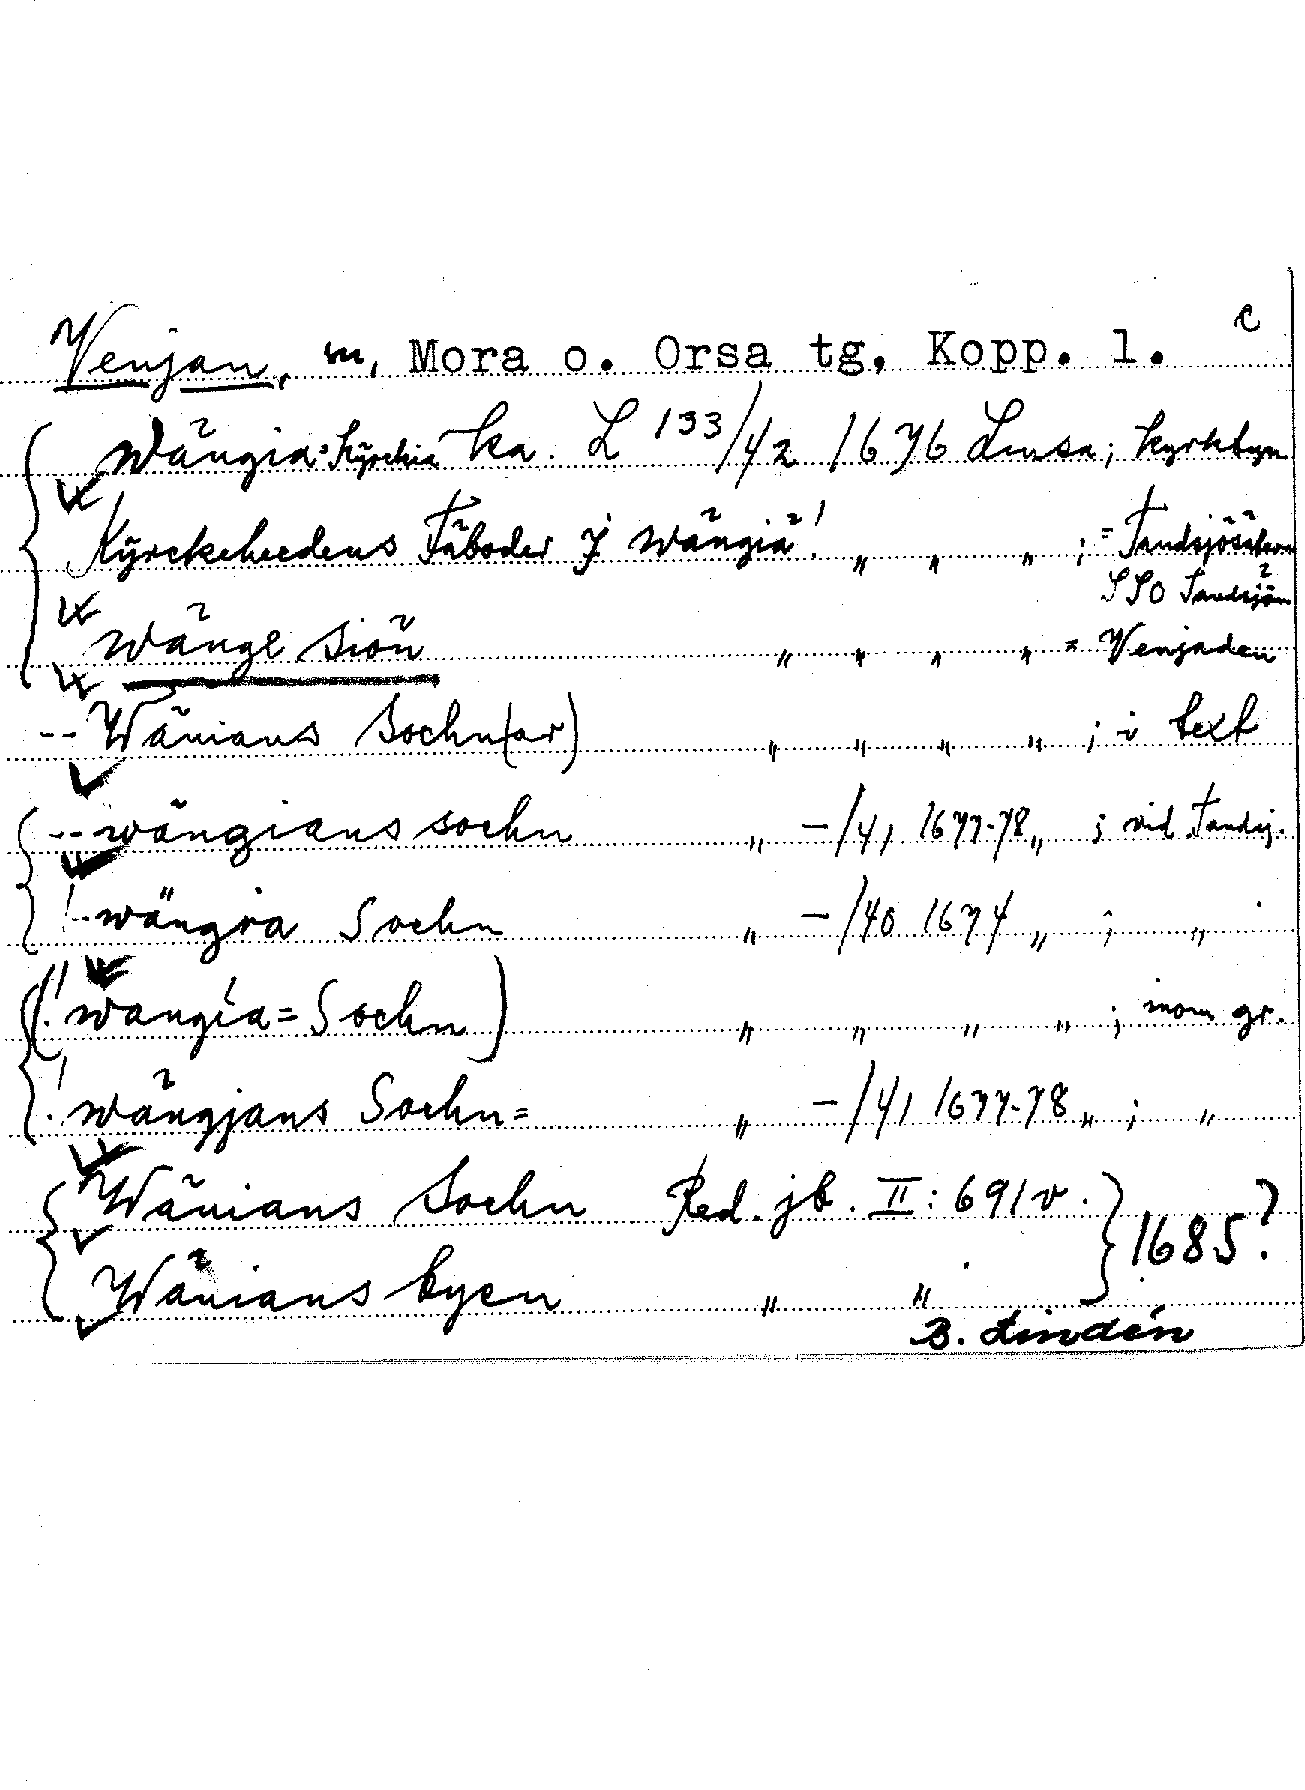 c
Venjan, sn, Mora o. Orsa tg, Kopp. l.
Wängia=Kÿrckia ka. L 133/42 1676 Lmsa; kyrkbyn
Kÿrckeheedens Fäboder J wängiä! " " " ; = Tandsjösätern
SSO Tandsjön
wänge Siön " " " " = Venjaden
-- Wänians Sochn(ar) " " " " ; i text
-- wängians sochn " -/41 1677-78 " ; vid Tandsj.
!-- wängia Sochn " -/40 1674 " ; "
(! wangia=Sochn) " " " " ; inom gr.
! wängjans Sochn= " -/41 1677-78 " ; "
Wänians Sochn Red. jb. II: 691 v. } 1685?
Wänians byen " "
B. Lindén